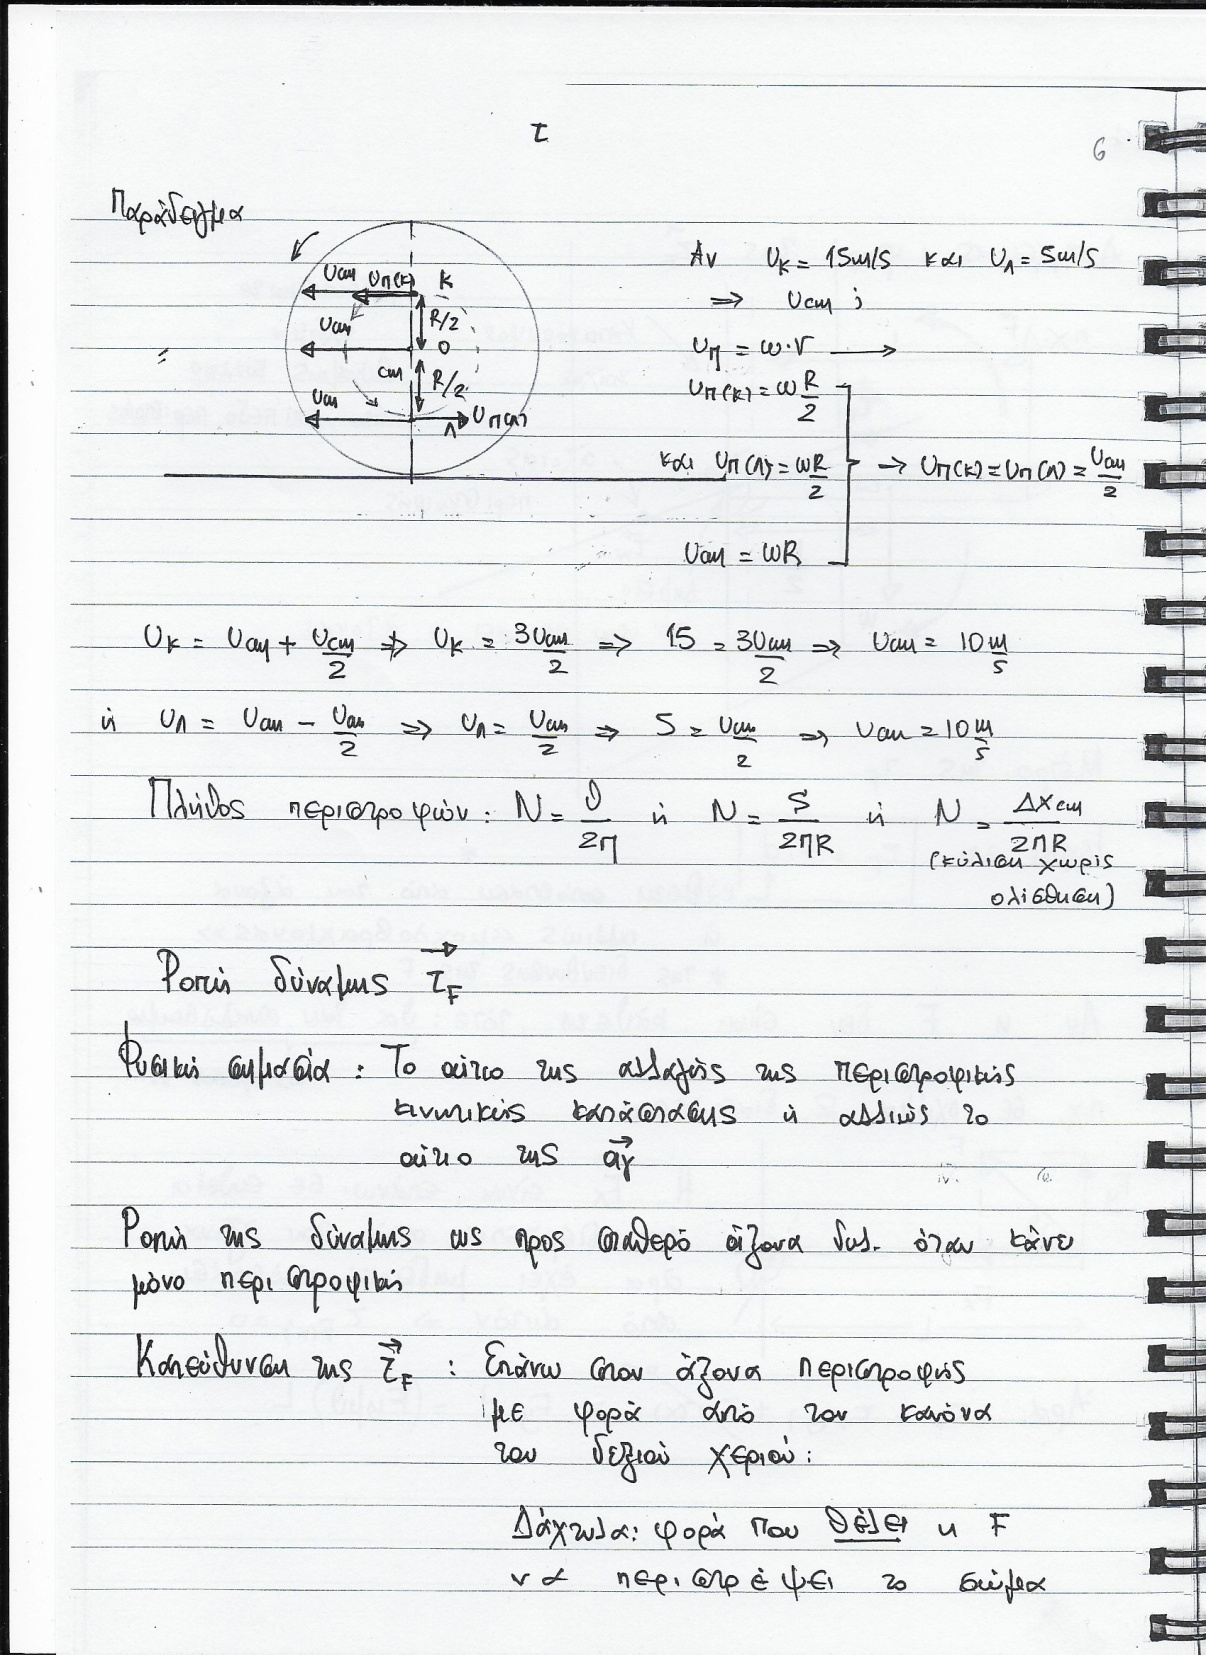 τ
6
Παράδειγμα
υcm υπ(κ) Κ
R/2
υcm Ο
cm R/2
υcm Λ υπ(Λ)
Αν υκ = 15m/s και υΛ = 5m/s
⇒ υcm ;
υπ = ω·r ⟶
υπ(κ) = ωR/2
και υπ(Λ) = ωR/2 → υπ(κ) = υπ(Λ) = υcm/2
υcm = ωR
υκ = υcm + υcm/2 ⇒ υκ = 3υcm/2 ⇒ 15 = 3υcm/2 ⇒ υcm = 10 m/s
ή υΛ = υcm − υcm/2 ⇒ υΛ = υcm/2 ⇒ 5 = υcm/2 ⇒ υcm = 10 m/s
Πλήθος περιστροφών: N = θ/2π ή N = S/2πR ή N = Δxcm/2πR
(κύλιση χωρίς
ολίσθηση)
Ροπή δύναμης τF
Φυσική σημασία: Το αίτιο της αλλαγής της περιστροφικής
κινητικής κατάστασης ή αλλιώς το
αίτιο της αγ
Ροπή της δύναμης ως προς σταθερό άξονα δηλ. όταν κάνει
μόνο περιστροφική
Κατεύθυνση της τF : Επάνω στον άξονα περιστροφής
με φορά από τον κανόνα
του δεξιού χεριού:
Δάχτυλα: φορά που θέλει η F
να περιστρέψει το σώμα